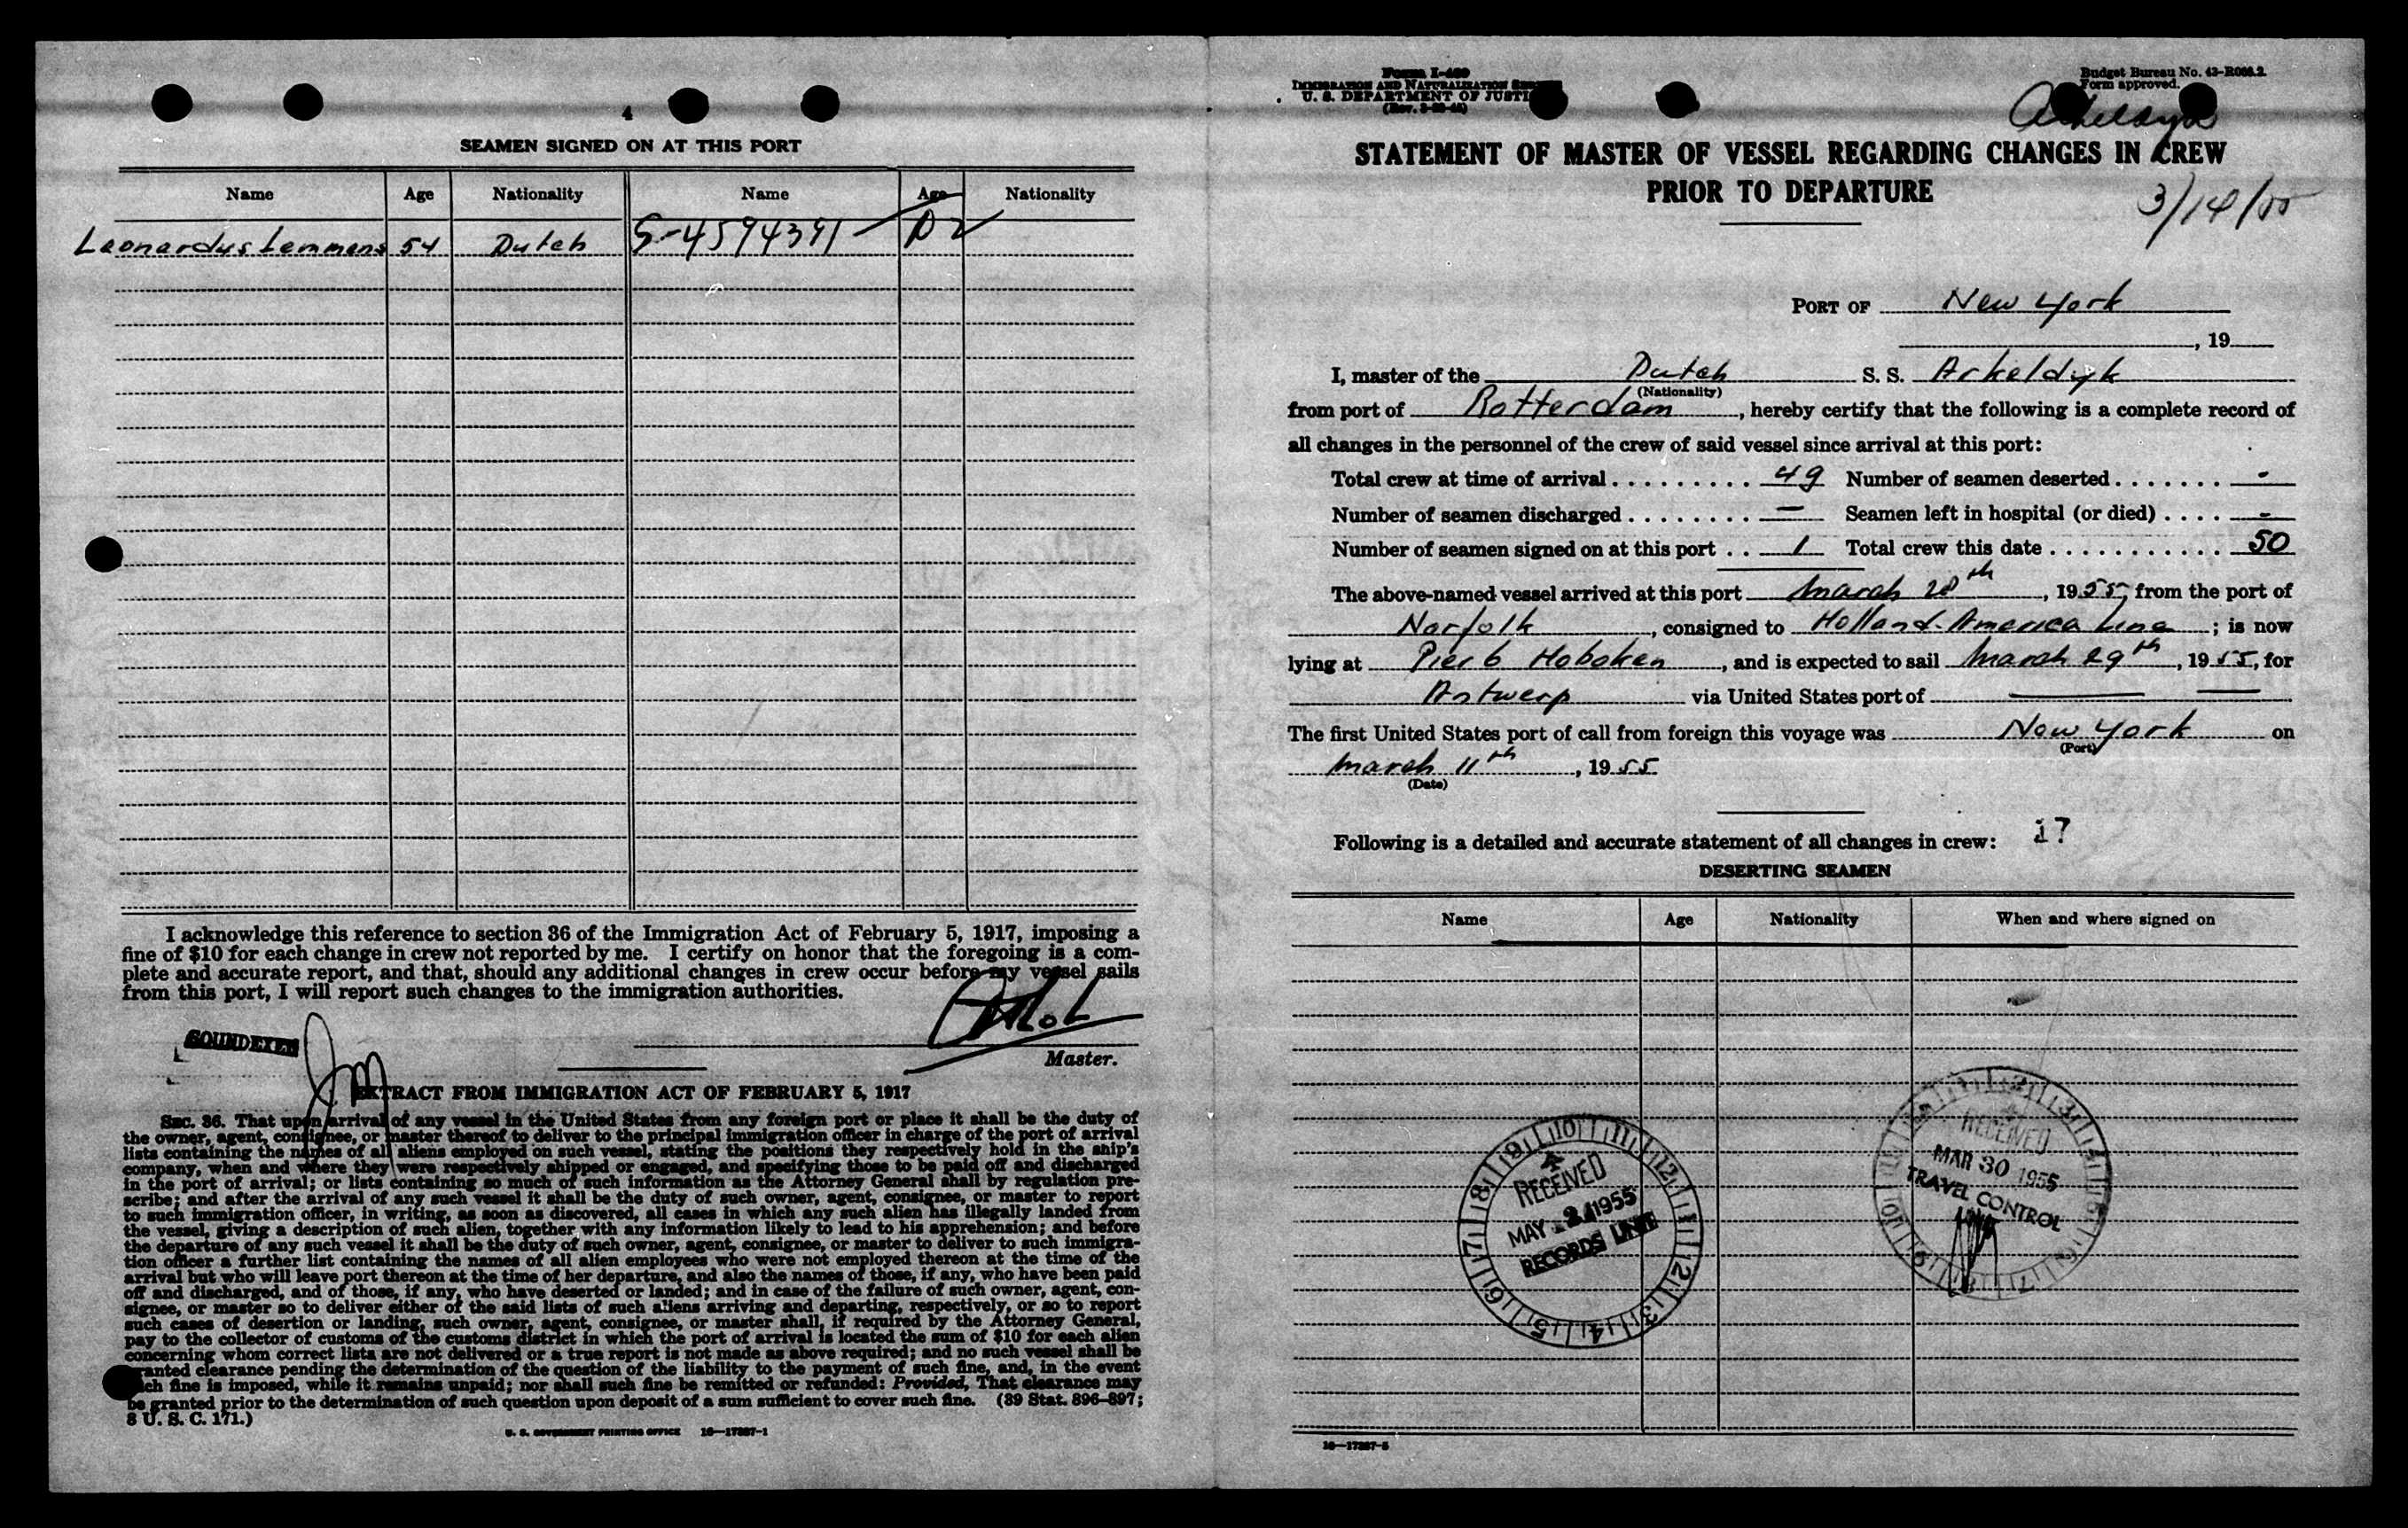 4
SEAMEN SIGNED ON AT THIS PORT
Name Age Nationality Name Age Nationality
Leonardus Lemmens 54 Dutch S-4594391 D2
I acknowledge this reference to section 36 of the Immigration Act of February 5, 1917, imposing a
fine of $10 for each change in crew not reported by me. I certify on honor that the foregoing is a com-
plete and accurate report, and that, should any additional changes in crew occur before my vessel sails
from this port, I will report such changes to the immigration authorities.
SOUNDEXED
Master.
EXTRACT FROM IMMIGRATION ACT OF FEBRUARY 5, 1917
Sec. 36. That upon arrival of any vessel in the United States from any foreign port or place it shall be the duty of
the owner, agent, consignee, or master thereof to deliver to the principal immigration officer in charge of the port of arrival
lists containing the names of all aliens employed on such vessel, stating the positions they respectively hold in the ship's
company, when and where they were respectively shipped or engaged, and specifying those to be paid off and discharged
in the port of arrival; or lists containing so much of such information as the Attorney General shall by regulation pre-
scribe; and after the arrival of any such vessel it shall be the duty of such owner, agent, consignee, or master to report
to such immigration officer, in writing, as soon as discovered, all cases in which any such alien has illegally landed from
the vessel, giving a description of such alien, together with any information likely to lead to his apprehension; and before
the departure of any such vessel it shall be the duty of such owner, agent, consignee, or master to deliver to such immigra-
tion officer a further list containing the names of all alien employees who were not employed thereon at the time of the
arrival but who will leave port thereon at the time of her departure, and also the names of those, if any, who have been paid
off and discharged, and of those, if any, who have deserted or landed; and in case of the failure of such owner, agent, con-
signee, or master so to deliver either of the said lists of such aliens arriving and departing, respectively, or so to report
such cases of desertion or landing, such owner, agent, consignee, or master shall, if required by the Attorney General,
pay to the collector of customs of the customs district in which the port of arrival is located the sum of $10 for each alien
concerning whom correct lists are not delivered or a true report is not made as above required; and no such vessel shall be
granted clearance pending the determination of the question of the liability to the payment of such fine, and, in the event
such fine is imposed, while it remains unpaid; nor shall such fine be remitted or refunded: Provided, That clearance may
be granted prior to the determination of such question upon deposit of a sum sufficient to cover such fine. (39 Stat. 896-897;
8 U. S. C. 171.)
U. S. GOVERNMENT PRINTING OFFICE 16—17387-1
Budget Bureau No. 43-R066.2.
Form approved.
IMMIGRATION AND NATURALIZATION
U. S. DEPARTMENT OF JUSTI
Arkeldyk
STATEMENT OF MASTER OF VESSEL REGARDING CHANGES IN CREW
PRIOR TO DEPARTURE
3/14/55
PORT OF New York
, 19
I, master of the Dutch S. S. Arkeldyk
(Nationality)
from port of Rotterdam, hereby certify that the following is a complete record of
all changes in the personnel of the crew of said vessel since arrival at this port:
Total crew at time of arrival . . . . . . . . . 49 Number of seamen deserted . . . . . . . -
Number of seamen discharged . . . . . . . . — Seamen left in hospital (or died) . . . . -
Number of seamen signed on at this port . . 1 Total crew this date . . . . . . . . . . . . 50
The above-named vessel arrived at this port March 28th, 1955, from the port of
Norfolk, consigned to Holland-America Line; is now
lying at Pier 6 Hoboken, and is expected to sail March 29th, 1955, for
Antwerp via United States port of — —
The first United States port of call from foreign this voyage was New York on
(Port)
March 11th, 1955
(Date)
Following is a detailed and accurate statement of all changes in crew: 17
DESERTING SEAMEN
Name Age Nationality When and where signed on
RECEIVED
MAR 30 1955
TRAVEL CONTROL
RECEIVED
MAY 2 1955
RECORDS UNIT
16—17387-5